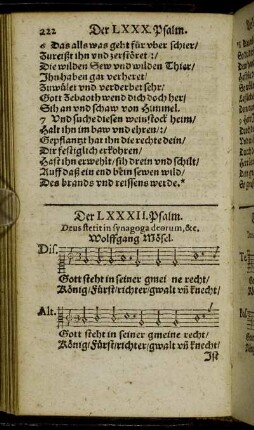 222 Der LXXX. Psalm.
6 Das alls was geht für vber schier/
Zureißt ihn vnd zerstöret :/:
Die wilden Sew vnd wilden Thier/
Ihn haben gar verheret/
Zuwület vnd verderbet sehr/
Gott Zebaoth wend dich doch her/
Sih an vnd schaw von Himmel.
7 Vnd suche diesen weinstock heim/
Halt ihn im baw vnd ehren/:/
Gepflantzt hat ihn die rechte dein/
Dir festiglich erkohren/
Hast ihn erwehlt/ sih drein vnd schilt/
Auff daß ein end dein sewen wild/
Des brands vnd reissens werde.*
Der LXXXII. Psalm.
Deus stetit in synagoga deorum, &c.
Wolffgang Mösel.
Dis.
Gott steht in seiner gmei ne recht/
König/ Fürst/ richter/ gwalt vñ knecht/
Alt.
Gott steht in seiner gmeine recht/
König/ Fürst/ richter/ gwalt vñ knecht/
Ist